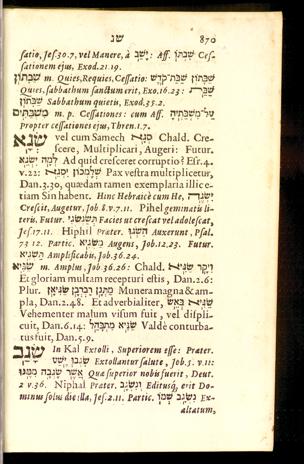 שנ 870
satio, Jes.30.7, vel Manere, à יָשַׁב : Aff. שִׁבְתּוֹ Ces-
sationem ejus, Exod.21.19.
שַׁבָּתוֹן m. Quies, Requies, Cessatio: שַׁבָּתוֹן שַׁבַּת־קֹדֶשׁ
Quies, sabbathum sanctum erit, Exo.16.23: שַׁבַּת
שַׁבָּתוֹן Sabbathum quietis, Exod.35.2.
מִשְׁבַּתִּים m. p. Cessationes: cum Aff. עַל־מִשְׁבַּתֶּיהָ
Propter cessationes ejus, Thren.1.7.
שְׂגָא vel cum Samech סְגָא Chald. Cre-
scere, Multiplicari, Augeri: Futur.
לְמָה יִשְׂגֵּא Ad quid cresceret corruptio? Esr.4.
v.22: שְׁלָמְכוֹן יִשְׂגֵּא Pax vestra multiplicetur,
Dan.3.30, quædam tamen exemplaria illic e-
tiam Sin habent. Hinc Hebraicè cum He, יִשְׂגֶּה
Crescit, Augetur, Job 8. v.7.11. Pihel geminatis li-
teris. Futur. תְּשַׂגְשֵׂגִי Facies ut crescat vel adolescat,
Jes.17.11. Hiphil Præter. הִשְׂגּוּ Auxerunt, Psal.
73 12. Partic. מַשְׂגִּיא Augens, Job.12.23. Futur.
תַּשְׂגִּיא Amplificabis, Job.36.24.
שַׂגִּיא m. Amplus, Job 36.26: Chald. וִיקָר שַׂגִּיא
Et gloriam multam recepturi estis, Dan.2.6:
Plur. מַתְּנָן רַבְרְבָן שַׂגִּיאָן Munera magna & am-
pla, Dan.2.48. Et adverbialiter, שַׂגִּיא בְּאֵשׁ
Vehementer malum visum fuit, vel displi-
cuit, Dan.6.14: שַׂגִּיא מִתְבָּהַל Valdè conturba-
tus fuit, Dan.5.9.
שָׂגַב In Kal Extolli, Superiorem esse: Præter.
שָׂגְבוּ יֶשַׁע Extollantur salute, Job.5. v.11:
אֲשֶׁר שָׂגְבָה מִמֶּנּוּ Quæ superior nobis fuerit, Deut.
2 v.36. Niphal Præter. וְנִשְׂגַּב Editusq́; erit Do-
minus solus die illa, Jes.2.11. Partic. נִשְׂגָּב שְׁמוֹ Ex-
altatum,